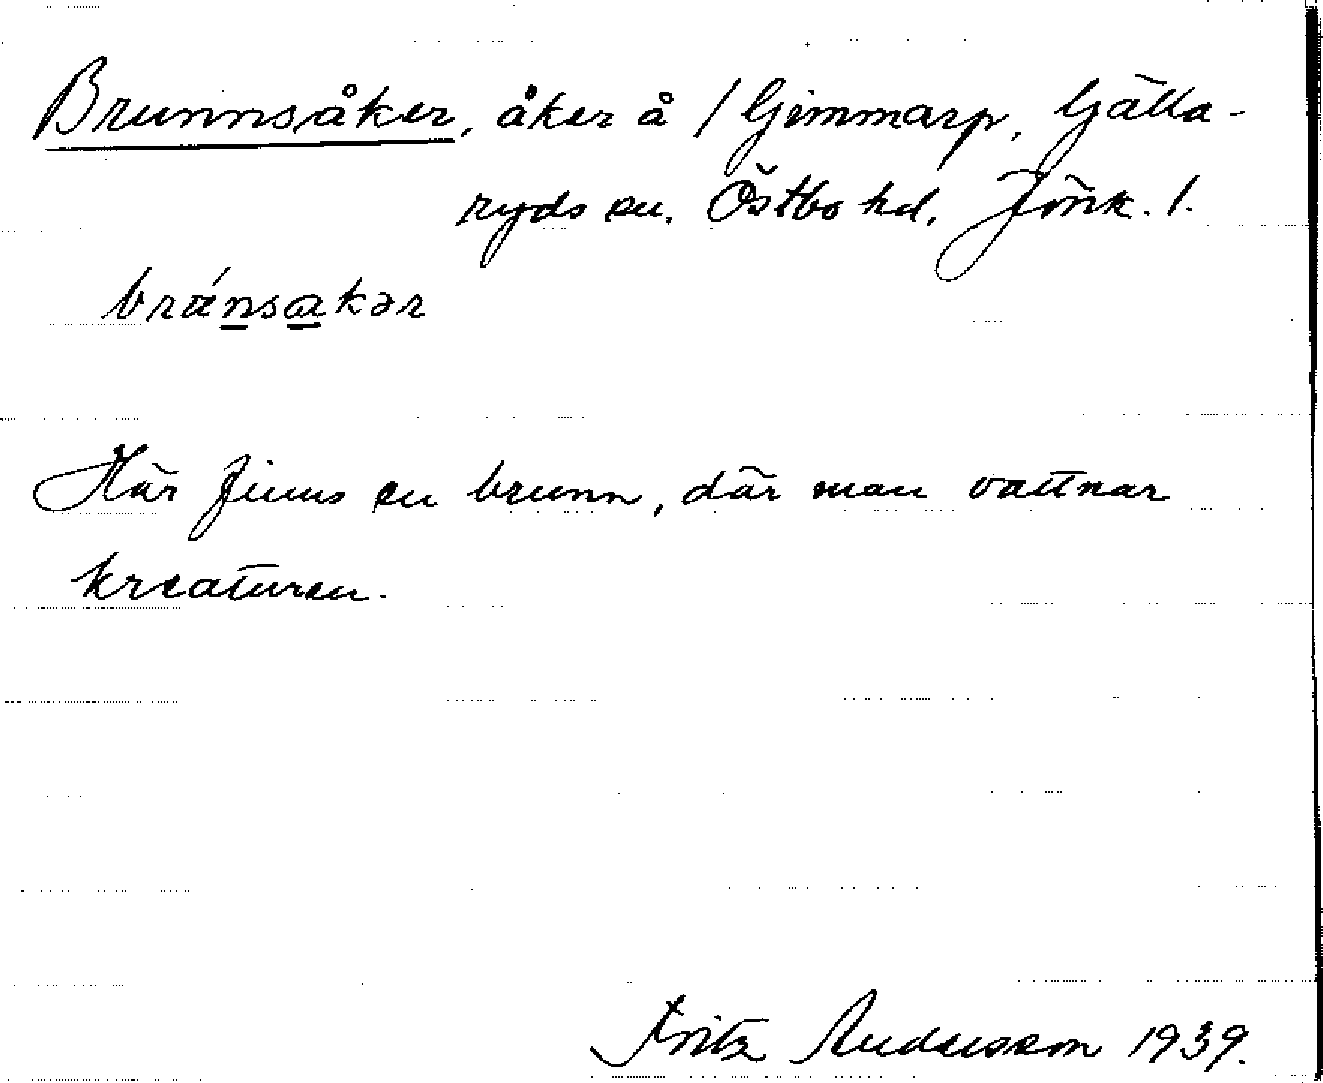 Brunnsåker, åker å / Gimmarp, Gälla-
ryds sn. Östbo hd, Jönk. l.
bránsakər
Här finns en brunn, där man vattnar
kreaturen.
Fritz Andersson 1939.